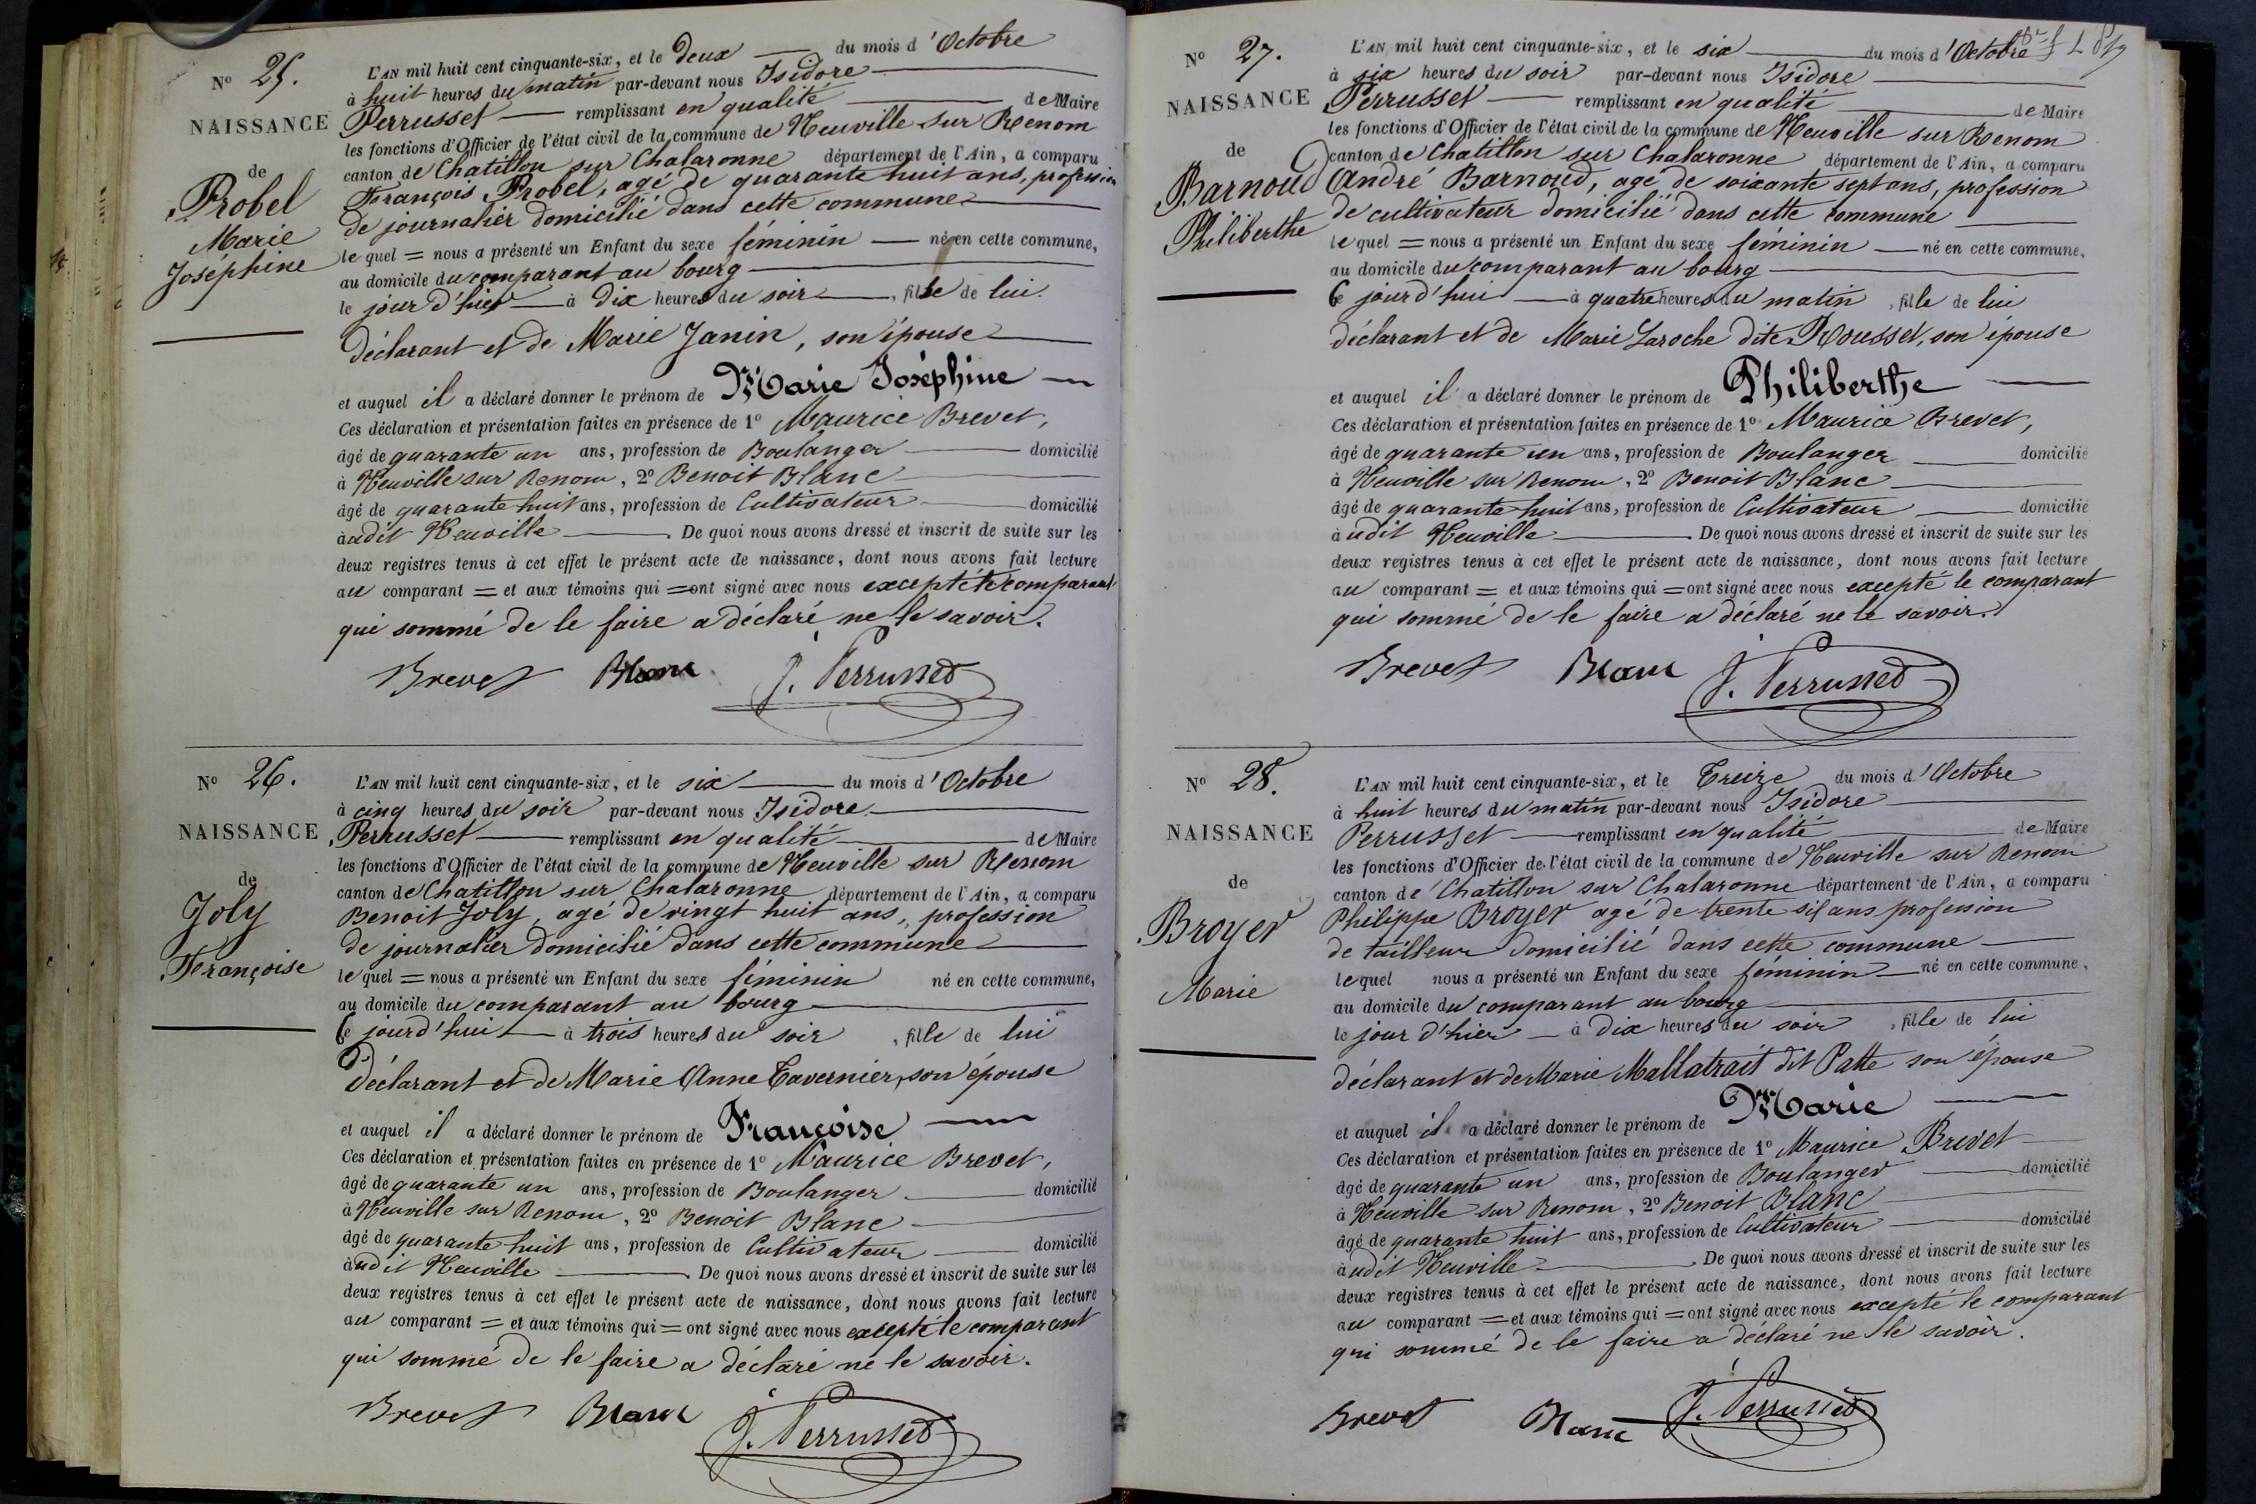 N° 25.
NAISSANCE
de
Probel
Marie
Joséphine
L'AN mil huit cent cinquante-six, et le deux du mois d'Octobre
à huit heures du matin par-devant nous Isidore
Perrusset remplissant en qualité de Maire
les fonctions d'Officier de l'état civil de la commune de Neuville sur Renom
canton de Chatillon sur Chalaronne département de l'Ain, a comparu
François Probel, agé de quarante huit ans, profession
de journalier domicilié dans cette commune
le quel = nous a présenté un Enfant du sexe féminin né en cette commune,
au domicile du comparant au bourg
le jour d'hier à dix heures du soir, fille de lui
déclarant et de Marie Janin, son épouse
et auquel il a déclaré donner le prénom de Marie Joséphine
Ces déclaration et présentation faites en présence de 1° Maurice Brevet,
âgé de quarante un ans, profession de Boulanger domicilié
à Neuville sur Renom, 2° Benoit Blanc
âgé de quarante huit ans, profession de Cultivateur domicilié
audit Neuville. De quoi nous avons dressé et inscrit de suite sur les
deux registres tenus à cet effet le présent acte de naissance, dont nous avons fait lecture
au comparant = et aux témoins qui = ont signé avec nous excepté le comparant
qui sommé de le faire a déclaré ne le savoir.
Brevet Blanc J. Perrusset
N° 26.
NAISSANCE
de
Joly
Françoise
L'AN mil huit cent cinquante-six, et le six du mois d'Octobre
à cinq heures du soir par-devant nous Isidore
Perrusset remplissant en qualité de Maire
les fonctions d'Officier de l'état civil de la commune de Neuville sur Renom
canton de Chatillon sur Chalaronne département de l'Ain, a comparu
Benoit Joly, agé de vingt huit ans, profession
de journalier domicilié dans cette commune
le quel = nous a présenté un Enfant du sexe féminin né en cette commune,
au domicile du comparant au bourg
Ce jourd'hui à trois heures du soir, fille de lui
déclarant et de Marie Anne Tavernier, son épouse
et auquel il a déclaré donner le prénom de Françoise
Ces déclaration et présentation faites en présence de 1° Maurice Brevet,
âgé de quarante un ans, profession de Boulanger domicilié
à Neuville sur Renom, 2° Benoit Blanc
âgé de quarante huit ans, profession de Cultivateur domicilié
audit Neuville. De quoi nous avons dressé et inscrit de suite sur les
deux registres tenus à cet effet le présent acte de naissance, dont nous avons fait lecture
au comparant = et aux témoins qui = ont signé avec nous excepté le comparant
qui sommé de le faire a déclaré ne le savoir.
Brevet Blanc J. Perrusset
N° 27.
NAISSANCE
de
Barnoud
Philiberthe
L'AN mil huit cent cinquante-six, et le six du mois d'Octobre
à six heures du soir par-devant nous Isidore
Perrusset remplissant en qualité de Maire
les fonctions d'Officier de l'état civil de la commune de Neuville sur Renom
canton de Chatillon sur Chalaronne département de l'Ain, a comparu
André Barnoud, agé de soixante sept ans, profession
de cultivateur domicilié dans cette commune
le quel = nous a présenté un Enfant du sexe féminin né en cette commune,
au domicile du comparant au bourg
Ce jourd'hui à quatre heures du matin, fille de lui
déclarant et de Marie Laroche dite Rousset, son épouse
et auquel il a déclaré donner le prénom de Philiberthe
Ces déclaration et présentation faites en présence de 1° Maurice Brevet,
âgé de quarante un ans, profession de Boulanger domicilié
à Neuville sur Renom, 2° Benoit Blanc
âgé de quarante huit ans, profession de Cultivateur domicilié
audit Neuville. De quoi nous avons dressé et inscrit de suite sur les
deux registres tenus à cet effet le présent acte de naissance, dont nous avons fait lecture
au comparant = et aux témoins qui = ont signé avec nous excepté le comparant
qui sommé de le faire a déclaré ne le savoir.
Brevet Blanc J. Perrusset
N° 28.
NAISSANCE
de
Broyer
Marie
L'AN mil huit cent cinquante-six, et le Treize du mois d'Octobre
à huit heures du matin par-devant nous Isidore
Perrusset remplissant en qualité de Maire
les fonctions d'Officier de l'état civil de la commune de Neuville sur Renom
canton de Chatillon sur Chalaronne département de l'Ain, a comparu
Philippe Broyer agé de trente six ans profession
de tailleur domicilié dans cette commune
le quel nous a présenté un Enfant du sexe féminin né en cette commune,
au domicile du comparant au bourg
le jour d'hier à dix heures du soir, fille de lui
déclarant et de Marie Mallatrait dit Patte son épouse
et auquel il a déclaré donner le prénom de Marie
Ces déclaration et présentation faites en présence de 1° Maurice Brevet
âgé de quarante un ans, profession de Boulanger domicilié
à Neuville sur Renom, 2° Benoit Blanc
âgé de quarante huit ans, profession de Cultivateur domicilié
audit Neuville. De quoi nous avons dressé et inscrit de suite sur les
deux registres tenus à cet effet le présent acte de naissance, dont nous avons fait lecture
au comparant = et aux témoins qui = ont signé avec nous excepté le comparant
qui sommé de le faire a déclaré ne le savoir.
Brevet Blanc J. Perrusset